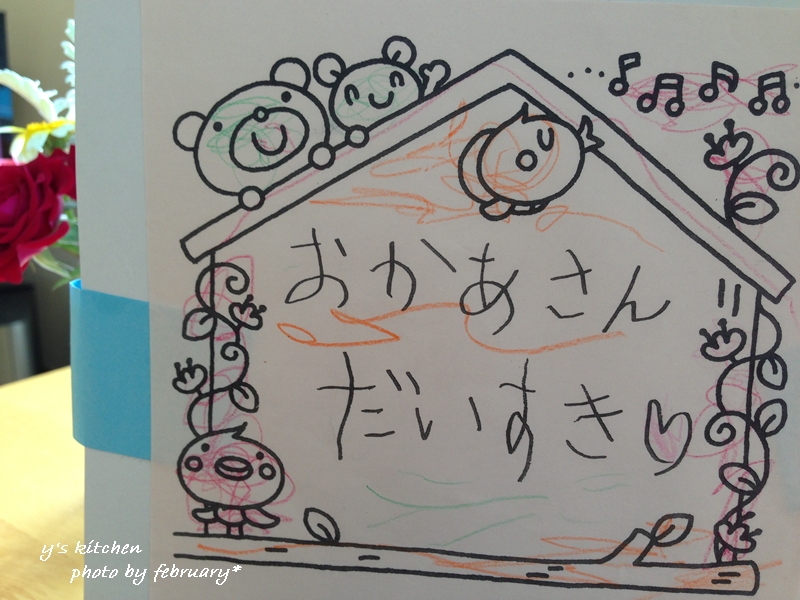 おかあさん
だいすき
y's kitchen
photo by february*